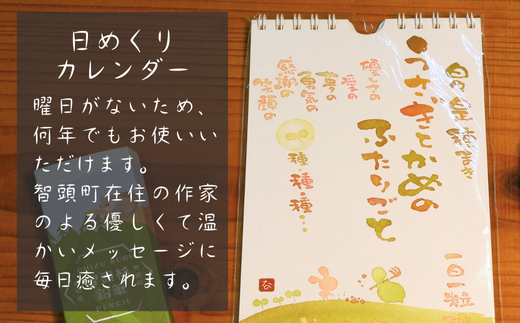 日めくり
カレンダー
曜日がないため、
何年でもお使いい
ただけます。
智頭町在住の作家
のよる優しくて温
かいメッセージに
毎日癒されます。
PENCIL
うさぎとかめの
ふたりごと
優しさの
愛の
夢の
勇気の
感謝の
笑顔の
種・種・種…
一日一粒